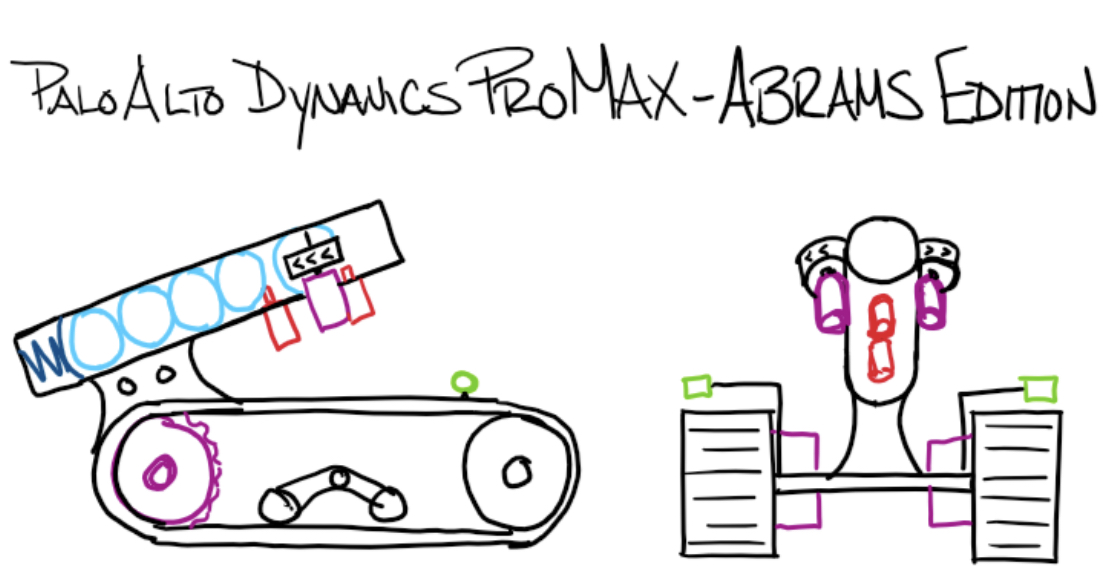 PALO ALTO DYNAMICS PROMAX-ABRAMS EDITION